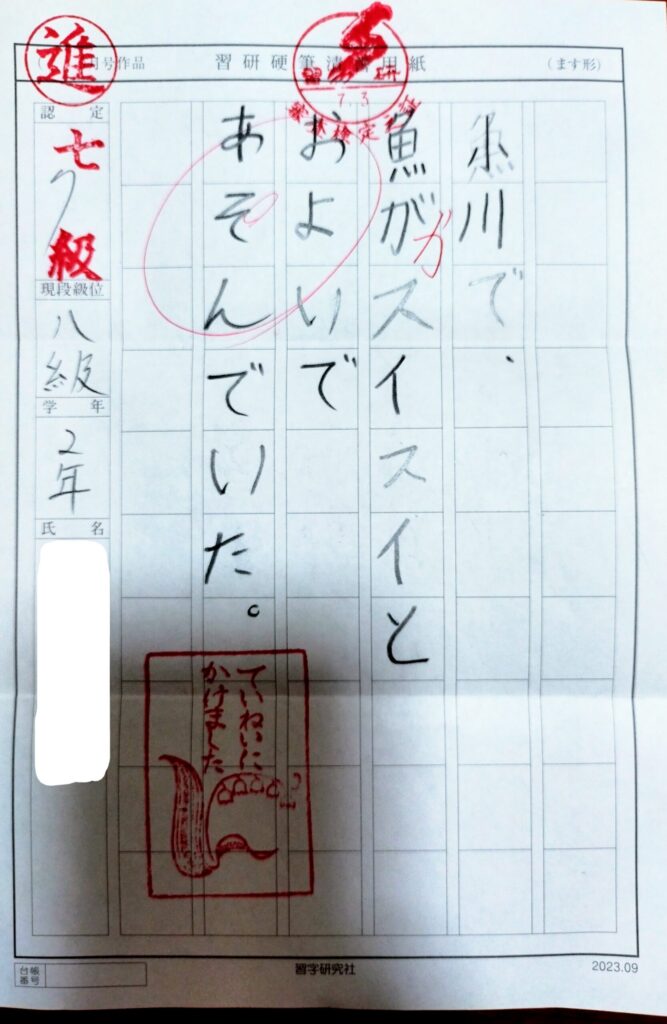 進
号作品
習研硬筆清書用紙
(ます形)
7.3
小川で、
魚がスイスイと
か
およいで
あそんでいた。
ていねいに
かけました
認定
七級
現段級位
八級
学年
2年
氏名
台帳番号
習字研究社
2023.09